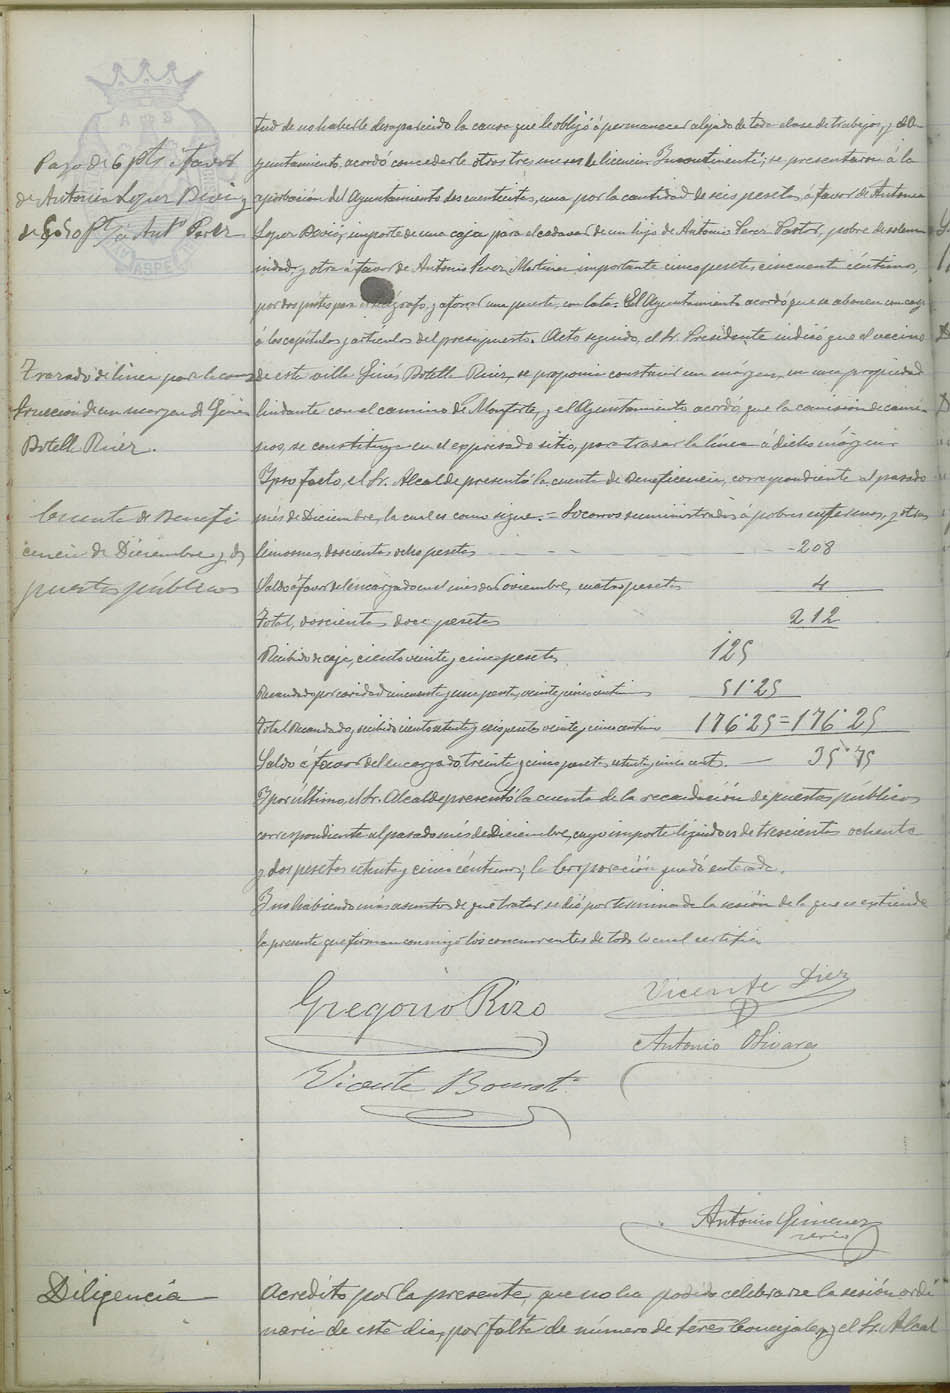 tud de no haberle desaparecido la causa que le obligó á permanecer alejado de toda clase de trabajos, y el A-
Pago de 6 pts á favor
yuntamiento, acordó concederle otros tres meses de licencia. Incontinenti; se presentaron á la
de Antonio Lopez Beviá y
aprobación del Ayuntamiento dos cuentecitas, una por la cantidad de seis pesetas, á favor de Antonio
de 5'50 Pts á Antº Perez
Lopez Beviá, importe de una caja para el cadaver de un hijo de Antonio Perez Pastor, pobre de solem-
nidad, y otra á favor de Antonio Perez Martinez importante cinco pesetas cincuenta céntimos,
por dos postes para el telégrafo, y aforrar una puerta, con lata. El Ayuntamiento acordó que se abonen con cargo
á los capítulos y artículos del presupuesto. Acto seguido, el Sr. Presidente indicó que el vecino
Trazado de linea para la cons
de esta villa Ginés Botella Ruiz, se proponia construir un márgen, en una propiedad
truccion de un margen de Ginés
lindante con el camino de Monforte, y el Ayuntamiento acordó que la comisión de cami-
Botella Ruiz.
nos, se constituya en el expresado sitio, para trazar la línea á dicho márgen.
Ipso facto, el Sr. Alcalde presentó la cuenta de Beneficencia, correspondiente al pasado
Cuenta de Benefi
més de Diciembre, la cual es como sigue. = Socorros suministrados á pobres enfermos, y otras
cencia de Diciembre y de
limosnas, doscientas ocho pesetas - - - - 208
puestos públicos
Saldo á favor del encargado en el mes de Noviembre, cuatro pesetas 4
Total, doscientas doce pesetas 212
Recibido de caja, ciento veinte y cinco pesetas 125
Recaudado por caridad cincuenta y una pesetas, veinte y cinco céntimos 51'25
Total Recaudado y recibido ciento setenta y seis pesetas veinte y cinco centimos 176'25 = 176'25
Saldo á favor del encargado, treinta y cinco pesetas setenta y cinco cents. — 35'75
Y por último, el Sr. Alcalde presentó la cuenta de la recaudación de puestos públicos
correspondiente al pasado més de Diciembre, cuyo importe líquido es de trescientas ochenta
y dos pesetas setenta y cinco céntimos; la Corporación quedó enterada.
Y no habiendo más asuntos de que tratar se dió por terminada la sesión de la que se extiende
la presente que firman conmigo los concurrentes de todo lo cual certifico
Gregorio Rizo
Vicente Diez
Antonio Olivares
Vicente
Antonio Gimenez
Diligencia
Acredito por la presente, que no ha podido celebrarse la sesión ordi
naria de este dia, por falta de número de Sres Concejales, y el Sr. Alcal